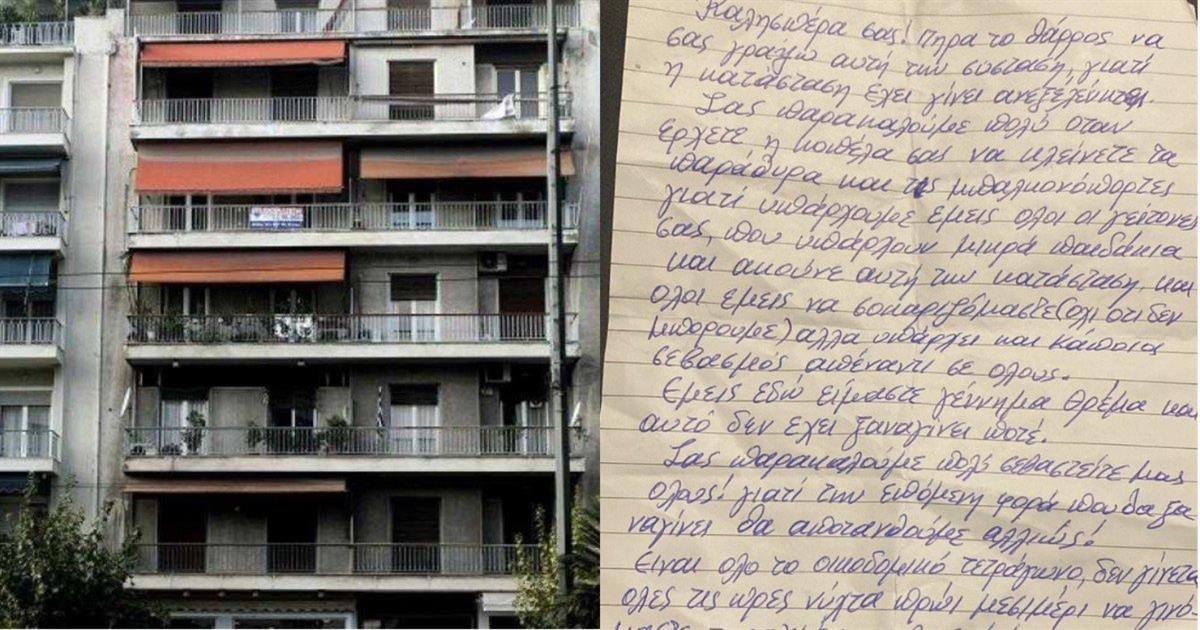 Καλησπέρα σας! Πηρα το θάρρος να
σας γραψω αυτή την σύσταση, γιατί
η κατάσταση εχει γίνει ανεξελένκτη.
Σας παρακαλούμε πολύ οταν
ερχετε, η κοπέλα σας να κλείνετε τα
παράθυρα και τις μπαλκονόπορτες
γιατί υπάρχουμε εμεις ολοι οι γείτονες
σας, που υπάρχουν μικρά παιδάκια
και ακούνε αυτή την κατάσταση και
ολοι εμεις να σοκαριζόμαστε(οχι οτι δεν
μπορουμε) αλλα υπάρχει και κάποια
σεβασμός απέναντι σε ολους.
Εμεις εδώ είμαστε γέννημα θρέμα και
αυτό δεν εχει ξαναγίνει ποτέ.
Σας παρακαλούμε πολύ σεβαστείτε μας
ολους! γιατί την επόμενη φορά που θα ξα
ναγίνει θα αποτανθούμε αλλιώς!
Ειναι ολο το οικοδομικό τετράγωνο, δεν γίνεται
ολες τις ωρες νύχτα πρωι μεσημέρι να γινό-